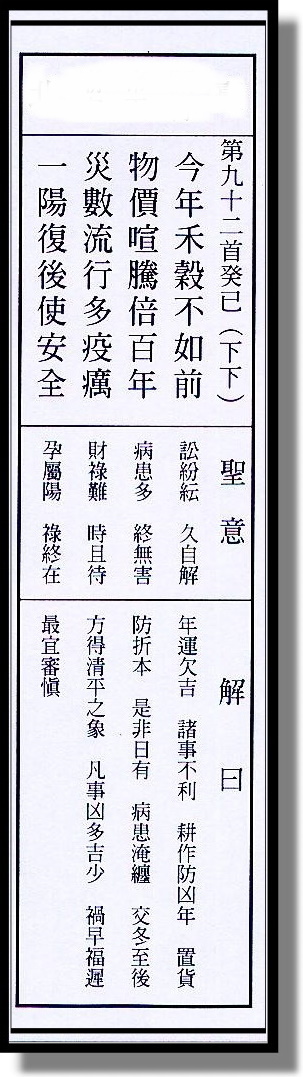 第九十二首癸巳（下下）
今年禾穀不如前
物價喧騰倍百年
災數流行多疫癘
一陽復後使安全
聖意
訟紛紜　久自解
病患多　終無害
財祿難　時且待
孕屬陽　祿終在
解曰
年運欠吉　諸事不利　耕作防凶年　置貨
防折本　是非日有　病患淹纏　交冬至後
方得清平之象　凡事凶多吉少　禍早福遲
最宜審慎